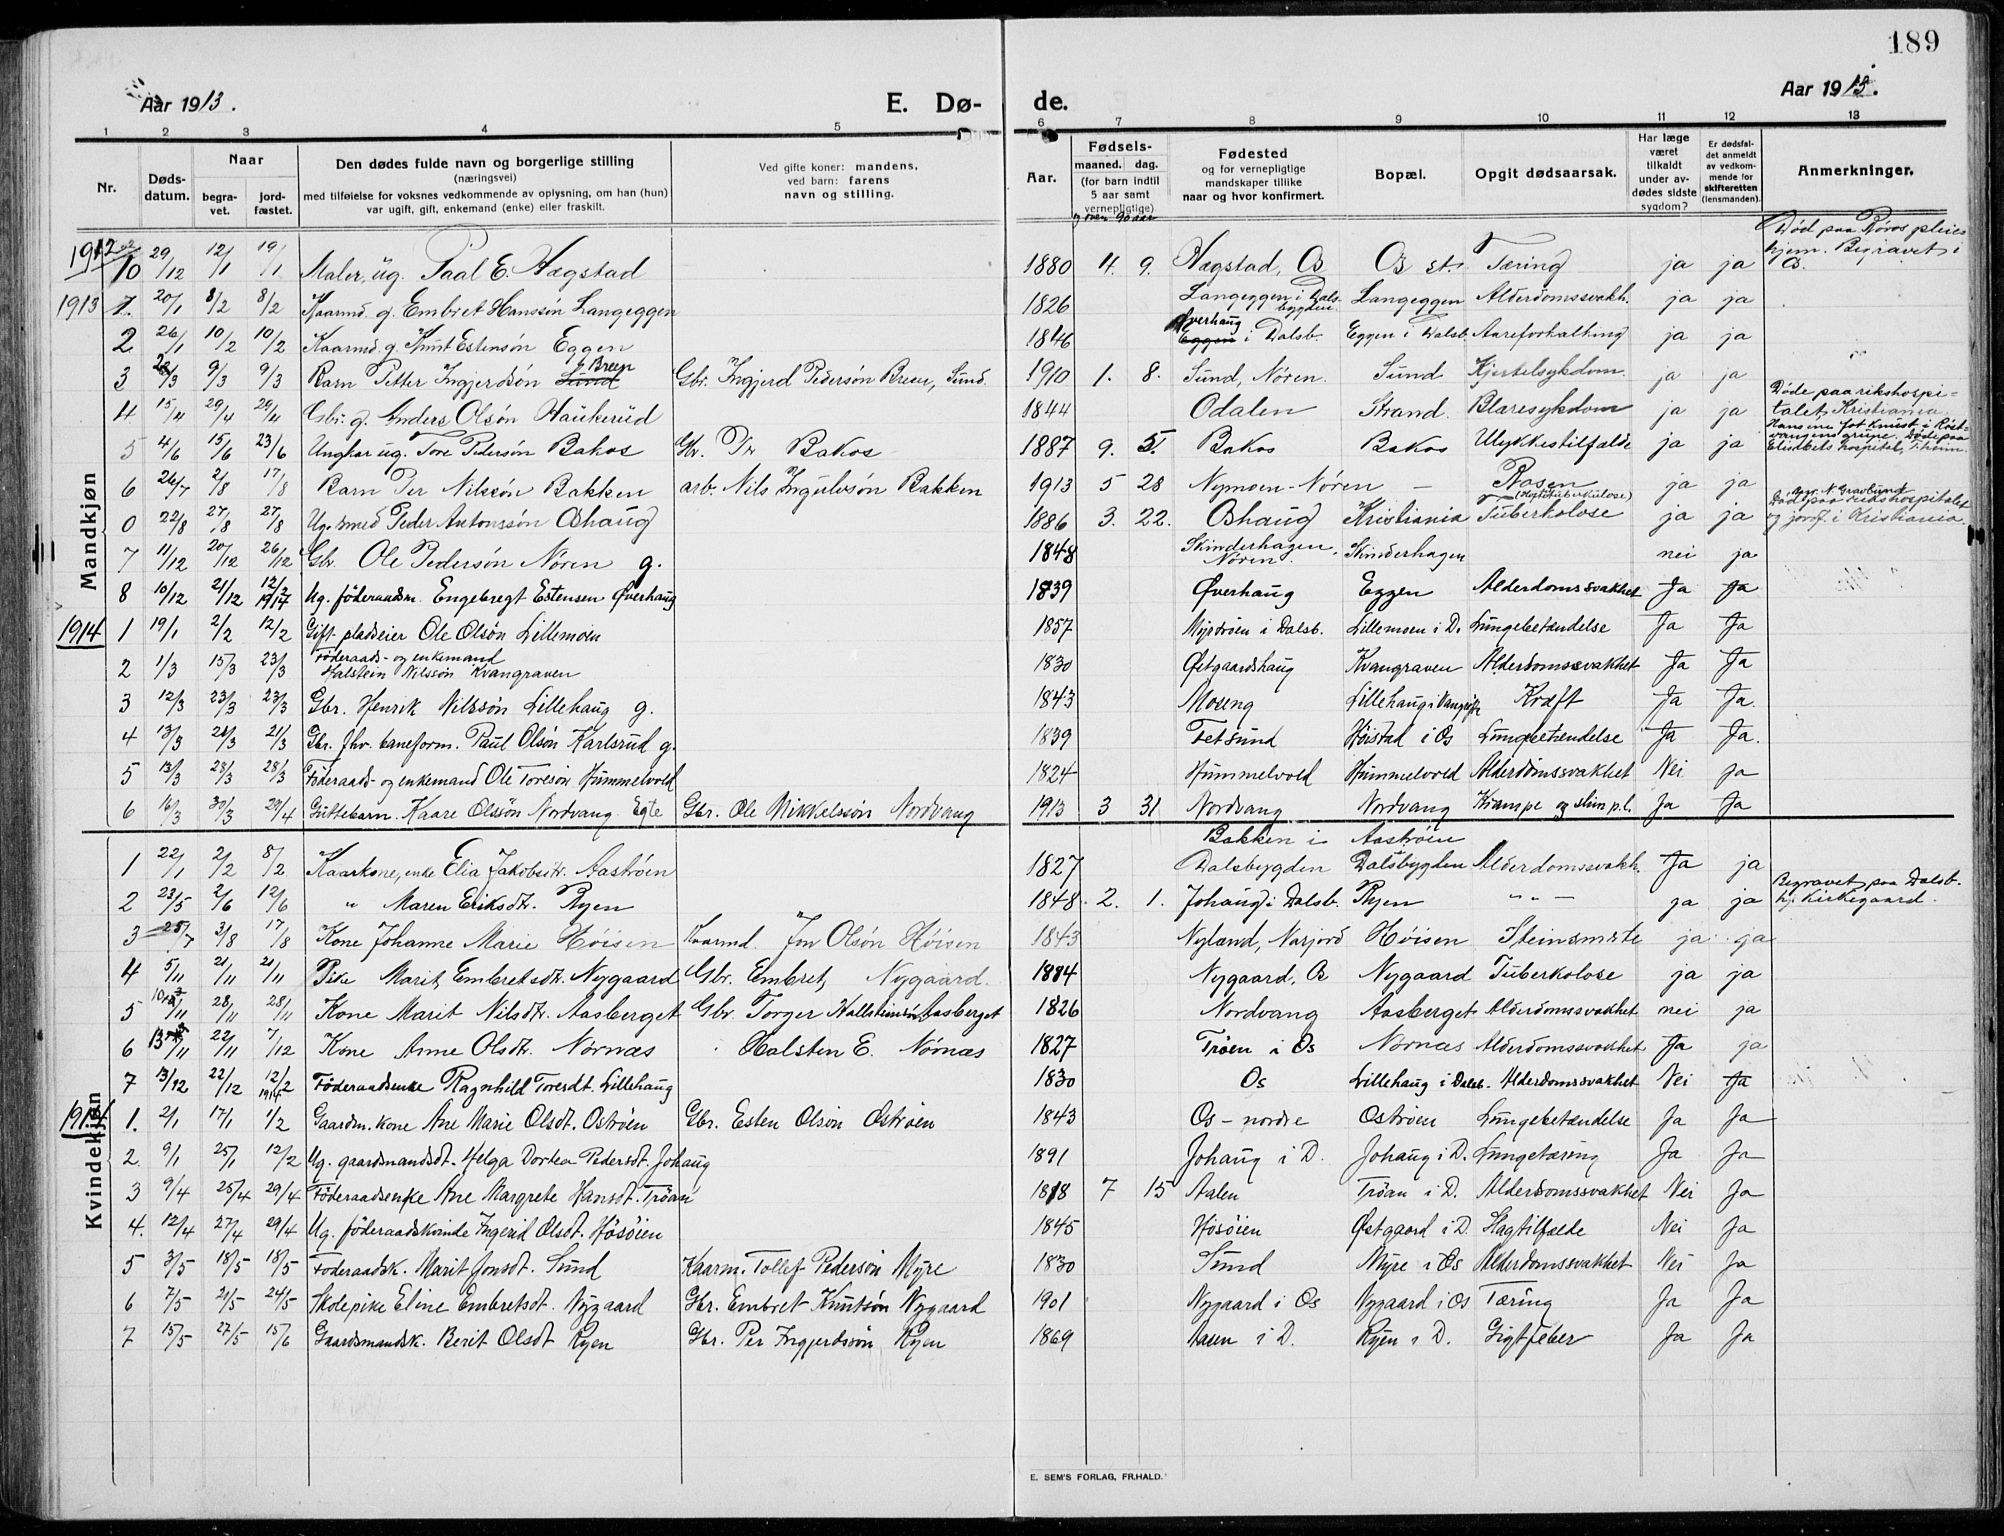 189
Aar 1913.
E. Dø-
de.
Aar 1913.
1 2 3 4 5 6 7 8 9 10 11 12 13
Nr.
Døds-
datum.
Naar
begra-
vet.
jord-
fæstet.
Den dødes fulde navn og borgerlige stilling
(næringsvei)
med tilføielse for voksnes vedkommende av oplysning, om han (hun)
var ugift, gift, enkemand (enke) eller fraskilt.
Ved gifte koner: mandens,
ved barn: farens
navn og stilling.
Aar.
Fødsels-
maaned. dag.
(for barn indtil
5 aar samt
vernepligtige)
og over 90 aar
Fødested
og for vernepligtige
mandskaper tillike
naar og hvor konfirmert.
Bopæl.
Opgit dødsaarsak.
Har læge
været
tilkaldt
under av-
dødes sidste
sygdom?
Er dødsfal-
det anmeldt
av vedkom-
mende for
skifteretten
(lensmanden).
Anmerkninger.
Mandkjøn
1912 10 29/12 12/1 19/1 Maler, ug. Paal E. Hægstad 1880 4. 9. Hægstad, Os Os st. Tæring ja ja Død paa Røros pleie-
hjem. Begravet i
Os.
1913 1. 20/1 8/2 8/2 Kaarmd. g. Embret Hanssøn Langeggen 1826 Langeggen i Dals-
bygden Langeggen Alderdomssvakh. ja ja
2 26/1 10/2 10/2 Kaarmd. g. Knut Estensøn Eggen 1846 Øverhaug
Eggen i Dalsb. Eggen i Dalsb. Aareforkalkning ja ja
3 28/3 9/3 9/3 Barn Petter Ingjerdsøn Sund Breen Gbr. Ingjerd Pedersøn Breen, Sund. 1910 1. 8. Sund, Nøren. Sund Kjertelsykdom. ja ja
4 15/4 29/4 29/4 Gbr. g. Anders Olsøn Haukerud 1844 Odalen Strand. Blæresykdom ja ja Døde paa rikshospi-
talet, Kristiania
5 4/6 15/6 23/6 Ungkar ug. Tore Pedersøn Bakos Gbr. Per Bakos 1887 9. 5. Bakos Bakos Ulykkestilfælde ja ja Hans ene fot knust i Røst-
vangens grube. Døde paa
Elisabets hospital, Thjem.
6 26/7 2/8 17/8 Barn Per Nilssøn Bakken arb. Nils Ingulvsøn Bakken 1913 5 28 Nymoen Nøren — Rosen ja ja
0 22/8 27/8 27/8 Ug. smed Peder Antonssøn Oshaug 1886 3. 22. Oshaug Kristiania Tuberkolose ja ja Død paa rikshospitalet
og jordf. i Kristiania.
7 11/12 20/12 26/12 Gbr. Ole Pedersøn Nøren g. 1848 Skinderhagen,
Nøren. Skinderhagen nei ja
8 10/12 21/12 12/2 1914 Ug. føderaadsm. Engebregt Estensen Øverhaug 1839 Øverhaug Eggen Alderdomssvakhet Ja Ja
1914 1 19/1 2/2 12/2 Gift pladseier Ole Olsøn Lillemoen 1857 Myrdrøen i Dalsb. Lillemoen i D. Lungebetændelse Ja Ja
2 1/3 15/3 23/3 Føderaads- og enkemand
Halstein Nilssøn Kvangraven 1830 Østgaardshaug Kvangraven Alderdomssvakhet Ja Ja
3 12/3 23/3 23/3 Gbr. Henrik Nilssøn Lillehaug g. 1843 Moseng Lillehaug i Vangrøft Kræft Ja Ja.
4 13/3 21/3 21/3 Gbr. fhv. baneform. Paul Olsøn Karlsrud g. 1839 Fetsund Høistad i Os Lungebetændelse Ja Ja.
5 13/3 28/3 28/3 Føderaads- og enkemand Ole Toresøn Hummelvold 1824 Hummelvold Hummelvold Alderdomssvakhet Nei Ja
6 16/3 30/3 29/4 Guttebarn Kaare Olssøn Nordvang Egte Gbr. Ole Mikkelssøn Nordvang 1913 3 31 Nordvang Nordvang Krampe og slim p.l. Ja Ja
Kvindekjøn
1 22/1 2/2 8/2 Kaarkone, enke Elia Jakobsdtr. Aastrøen 1827 Bakken i
Dalsbygden Aastrøen
Dalsbygden Alderdomssvakh. Ja ja
2 23/5 2/6 12/6 " Maren Eriksdtr. Ryen 1848 2. 1. Johaug i Dalsb. Ryen " - — ja ja Begravet paa Dalsb.
Kirkegaard.
3 25/7 3/8 17/8 Kone Johanne Marie Høisen Kaarmd. Jon Olsøn Høisen 1843 Nyland, Narjord Høisen Steinsmste ja ja
4 5/11 21/11 21/11 Pike Marit Embretsdt. Nygaard Gbr. Embret Nygaard. 1884 Nygaard, Os Nygaard Tuberkolose ja ja
5 28/11 28/11 Kone Marit Nilsdtr. Aasberget Gbr. Torger Hallsteinsøn Aasberget 1826 Nordvang Aasberget Alderdomssvakhet nei ja
6 13/11 22/11 7/12 Kone Anne Olsdtr. Nørnæs Halsten E. Nørnæs 1827 Trøen i Os Nørnæs Alderdomssvakhet Ja ja
7 13/12 22/12 12/2 1914 Føderaadsenke Ragnhild Toresdt. Lillehaug 1830 Os Lillehaug i Dalsb. Alderdomssvakhet Nei Ja
1914 1. 2/1 17/1 1/2 Gaardm. kone Ane Marie Olsdt. Ostrøen Gbr. Esten Olsøn Østrøen 1843 Os - nordre Ostrøen Lungebetændelse Ja Ja
2. 9/1 25/1 12/2 Ug. gaardsmandsdt. Helga Dortea Pedersdt. Johaug 1891 Johaug i D. Johaug i D. Lungetæring Ja Ja
3 9/4 25/4 29/4 Føderaadsenke Ane Margrete Hansdt. Trøan 1818 7 15 Aalen Trøan i D. Alderdomssvakhet Nei Ja
4. 12/4 27/4 29/4 Ug. føderaadskvinde Ingerid Olsdt. Høsøien 1845 Høsøien Østgaard i D. Slagtilfælde Nei Ja
5 3/5 18/5 18/5 Føderaadsk. Marit Jonsdt. Sund Kaarm. Tollef Pedersøn Myre 1830 Sund Myre i Os Alderdomssvakhet Nei Ja
6 7/5 21/5 24/5 Skolepike Eline Embretsdt. Nygaard Gbr. Embret Knutsøn Nygaard 1901 Nygaard i Os Nygaard i Os Tæring Ja Ja
7 15/5 27/5 15/6 Gaardsmandsk. Berit Olsdt Ryen Gbr. Per Ingjerdssøn Ryen 1869 Aasen i D. Ryen i D. Gigtfeber Ja Ja
E. SEM'S FORLAG, FR.HALD.